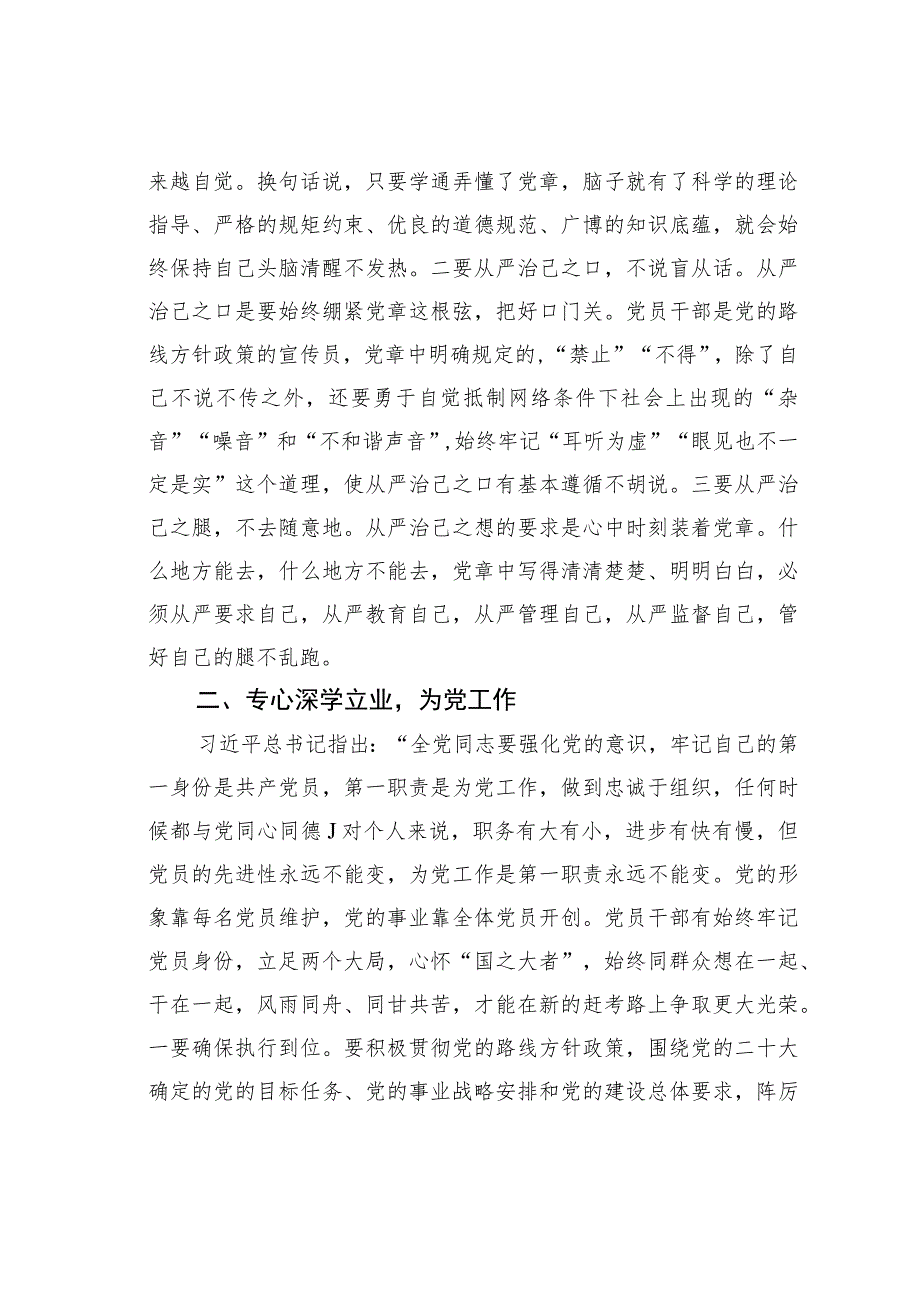 来越自觉。换句话说，只要学通弄懂了党章，脑子就有了科学的理论
指导、严格的规矩约束、优良的道德规范、广博的知识底蕴，就会始
终保持自己头脑清醒不发热。二要从严治己之口，不说盲从话。从严
治己之口是要始终绷紧党章这根弦，把好口门关。党员干部是党的路
线方针政策的宣传员，党章中明确规定的,“禁止”“不得”，除了自
己不说不传之外，还要勇于自觉抵制网络条件下社会上出现的“杂
音”“噪音”和“不和谐声音”,始终牢记“耳听为虚”“眼见也不一
定是实”这个道理，使从严治己之口有基本遵循不胡说。三要从严治
己之腿，不去随意地。从严治己之想的要求是心中时刻装着党章。什
么地方能去，什么地方不能去，党章中写得清清楚楚、明明白白，必
须从严要求自己，从严教育自己，从严管理自己，从严监督自己，管
好自己的腿不乱跑。
二、专心深学立业，为党工作
习近平总书记指出：“全党同志要强化党的意识，牢记自己的第
一身份是共产党员，第一职责是为党工作，做到忠诚于组织，任何时
候都与党同心同德J对个人来说，职务有大有小，进步有快有慢，但
党员的先进性永远不能变，为党工作是第一职责永远不能变。党的形
象靠每名党员维护，党的事业靠全体党员开创。党员干部有始终牢记
党员身份，立足两个大局，心怀“国之大者”，始终同群众想在一起、
干在一起，风雨同舟、同甘共苦，才能在新的赶考路上争取更大光荣。
一要确保执行到位。要积极贯彻党的路线方针政策，围绕党的二十大
确定的党的目标任务、党的事业战略安排和党的建设总体要求，阵厉